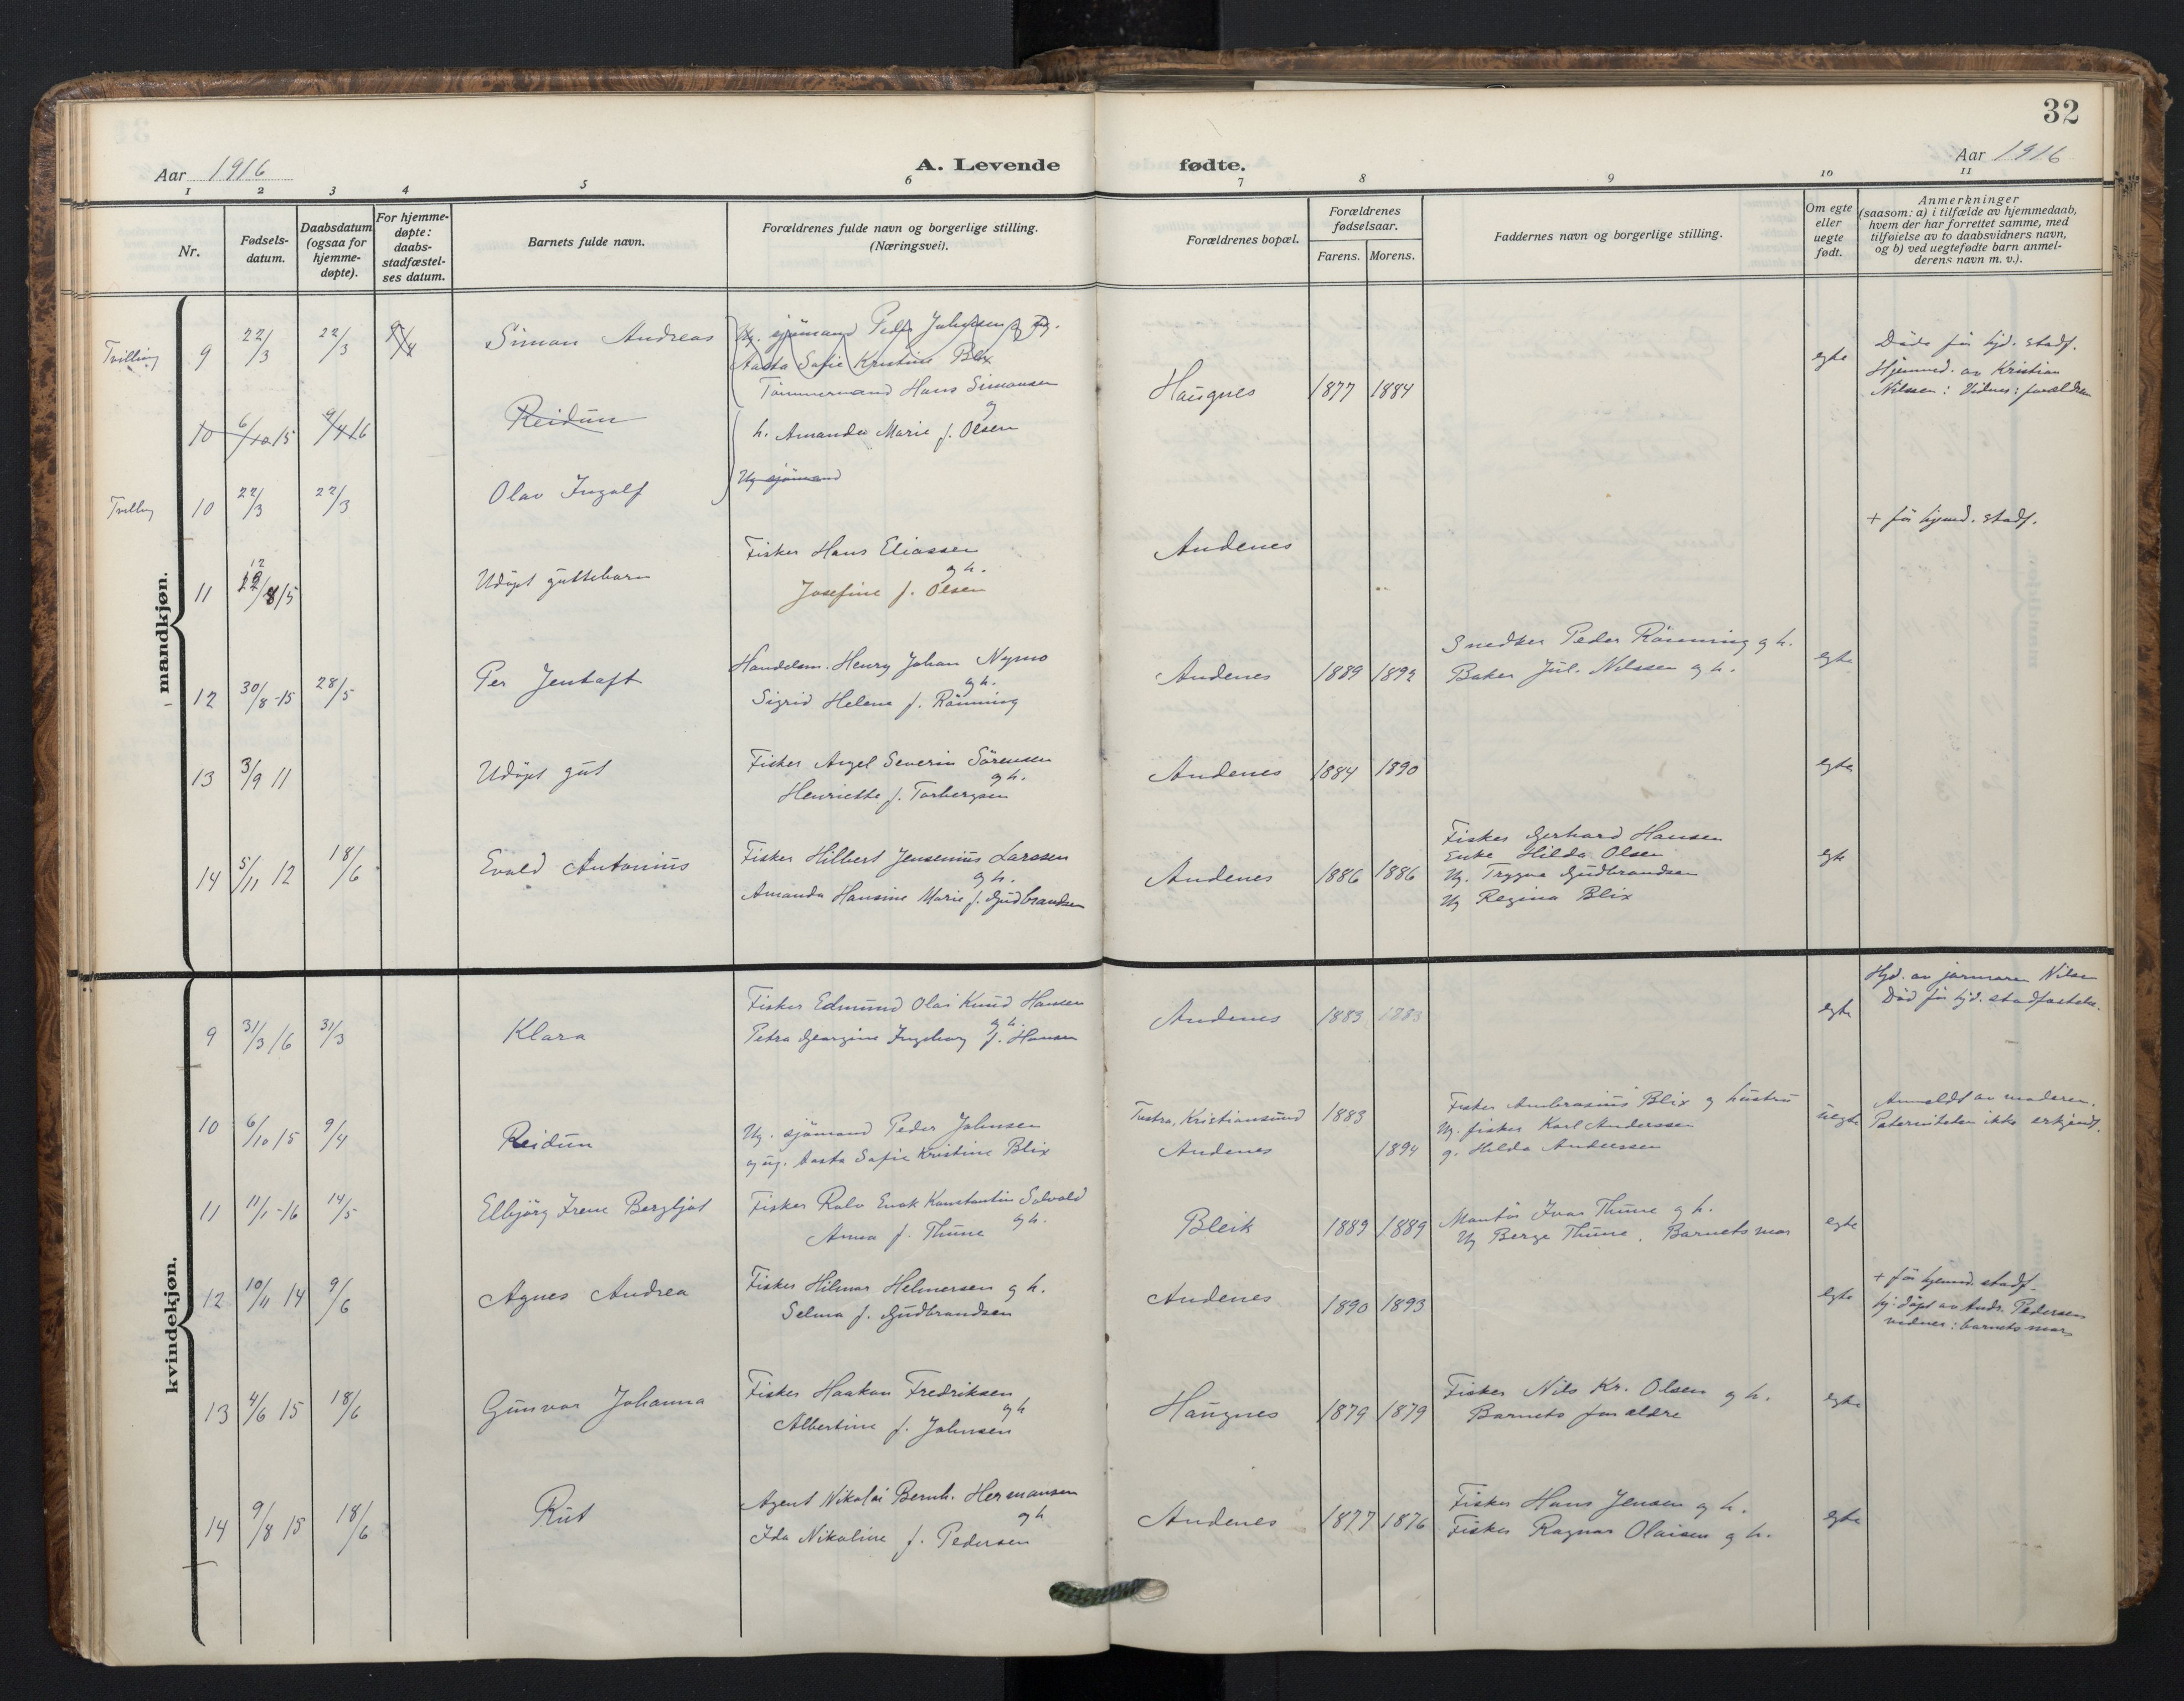 32
Aar 1916
A. Levende
fødte.
Aar 1916
1 2 3 4 5 6 7 8 9 10 11
Nr.
Fødsels-
datum.
Daabsdatum
(ogsaa for
hjemme-
døpte).
For hjemme-
døpte:
daabs-
stadfæstel-
ses datum.
Barnets fulde navn.
Forældrenes fulde navn og borgerlige stilling.
(Næringsvei).
Forældrenes bopæl.
Forældrenes
fødselsaar.
Farens. Morens.
Faddernes navn og borgerlige stilling.
Om egte
eller
uegte
født.
Anmerkninger
(saasom: a) i tilfælde av hjemmedaab,
hvem der har forrettet samme, med
tilføielse av to daabsvidners navn,
og b) ved uegtefødte barn anmel-
derens navn m. v.).
mandkjøn.
Tvilling 9 22/3 22/3 9/4 Simon Andreas
Ug. sjømand Peder Johnsen og ug.
Aasta Sofie Kristine Blix
Tømmermand Hans Simonsen
og
h. Amanda Marie f. Olsen
Haugnes 1877 1884
egte
Døde før hjd. stadf.
Hjemmed. av Kristian
Nilssen: Vidner: forældren
10 6/10 15 9/4 16 Reidun
Ug sjømand
Tvilling 10 22/3 22/3 Olav Ingolf
+ før hjemd. stadf.
11 12/8 15 Udøpt guttebarn
Fisker Hans Eliassen
og h.
Josefine f. Olsen
Andenes
12 30/8-15 28/5 Per Jentoft
Handelsm. Henry Johan Nymo
og h.
Sigrid Helene f. Rönning
Andenes 1889 1892
Snedker Peder Rönning og h.
Baker Jul. Nilssen og h.
egte
13 3/9 11 Udøpt gut
Fisker Angel Severin Sörensen
og h.
Henriette f. Torbergsen
Andenes 1884 1890
egte
14 5/11 12 18/6 Evald Antonius
Fisker Hilbert Jensenius Larssen
og h.
Amanda Hansine Marie f. Gudbrandsen
Andenes 1886 1886
Fisker Gerhard Hansen
Enke Hilda Olsen
Ug. Trygve Gudbrandsen
Ug Regina Blix
egte
kvindekjøn.
9 31/3 16 31/3 Klara
Fisker Edmund Olai Knud Hansen
og h.
Petra Georgine Ingeborg f. Hansen
Andenes 1883 1883
egte
Hjd. av jormora Nilsen
Död før hjd. stadfæstelse.
10 6/10 15 9/4 Reidun
Ug. sjömand Peder Johnsen
og ug. Aasta Sofie Kristine Blix
Tustra, Kristiansund 1883
Andenes 1894
Fisker Ambrosius Blix og hustru
Ug. fisker Karl Anderssen
g. Hilda Anderssen
uegte
Anmeldt av moderen.
Paterniteten ikke erkjendt.
11 11/1-16 14/5 Elbjörg Irene Bergljot
Fisker Rolv Enok Konstantin Solvold
og h.
Anna f. Thune
Bleik 1889 1889
Montör Ivar Thune og h.
Ug Berge Thune, Barnets mor
egte
12 10/11 14 9/6 Agnes Andrea
Fisker Hilmar Helmersen og h.
Selma f. Gudbrandsen
Andenes 1890 1893
egte
+ før hjemd. stadf.
hj. døpt av Andr. Pedersen
vidner: barnets mor
13 4/6 15 18/6 Gunvor Johanna
Fisker Haakon Fredriksen
og h
Albertine f. Johnsen
Haugnes 1879 1879
Fisker Nils Kr. Olsen og h.
Barnets forældre
egte
14 9/8 15 18/6 Rut
Agent Nikolai Bernh. Hermansen
og h
Ida Nikoline f. Pedersen
Andenes 1877 1876
Fisker Hans Jensen og h.
Fisker Ragnar Olaisen og h.
egte